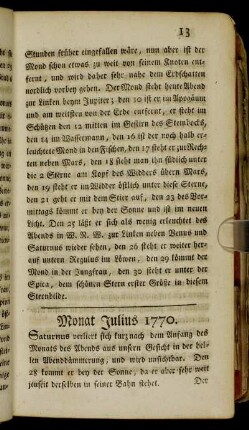 13
Stunden früher eingefallen wäre, nun aber ist der
Mond schon etwas zu weit von seinem Knoten ent-
fernt, und wird daher sehr nahe dem Erdschatten
nordlich vorbey gehen. Der Mond steht heute Abend
zur Linken beym Jupiter; den 10 ist er im Apogäum
und am weitesten von der Erde entfernt, er steht im
Schützen den 12 mitten im Gestirn des Steinbocks,
den 14 im Wassermann, den 16 ist der noch halb er-
leuchtete Mond in den Fischen, den 17 steht er zur Rech-
ten neben Mars, den 18 steht man ihn südlich unter
die 2 Sterne am Kopf des Widders übern Mars,
den 19 steht er im Widder östlich unter diese Sterne,
den 21 geht er mit dem Stier auf, den 23 des Vor-
mittags kömmt er bey der Sonne und ist im neuen
Licht. Den 25 läßt er sich als wenig erleuchtet des
Abends in W. N. W. zur Linken neben Venus und
Saturnus wieder sehen, den 26 steht er weiter her-
auf untern Regulus im Löwen, den 29 kömmt der
Mond in der Jungfrau, den 30 steht er unter der
Spica, dem schönen Stern erster Größe in diesem
Sternbilde.
Monat Julius 1770.
Saturnus verliert sich kurz nach dem Anfang des
Monats des Abends aus unsern Gesicht in der hel-
len Abenddämmerung, und wird unsichtbar. Den
28 kommt er bey der Sonne, da er aber sehr weit
jenseit derselben in seiner Bahn stehet.
Der